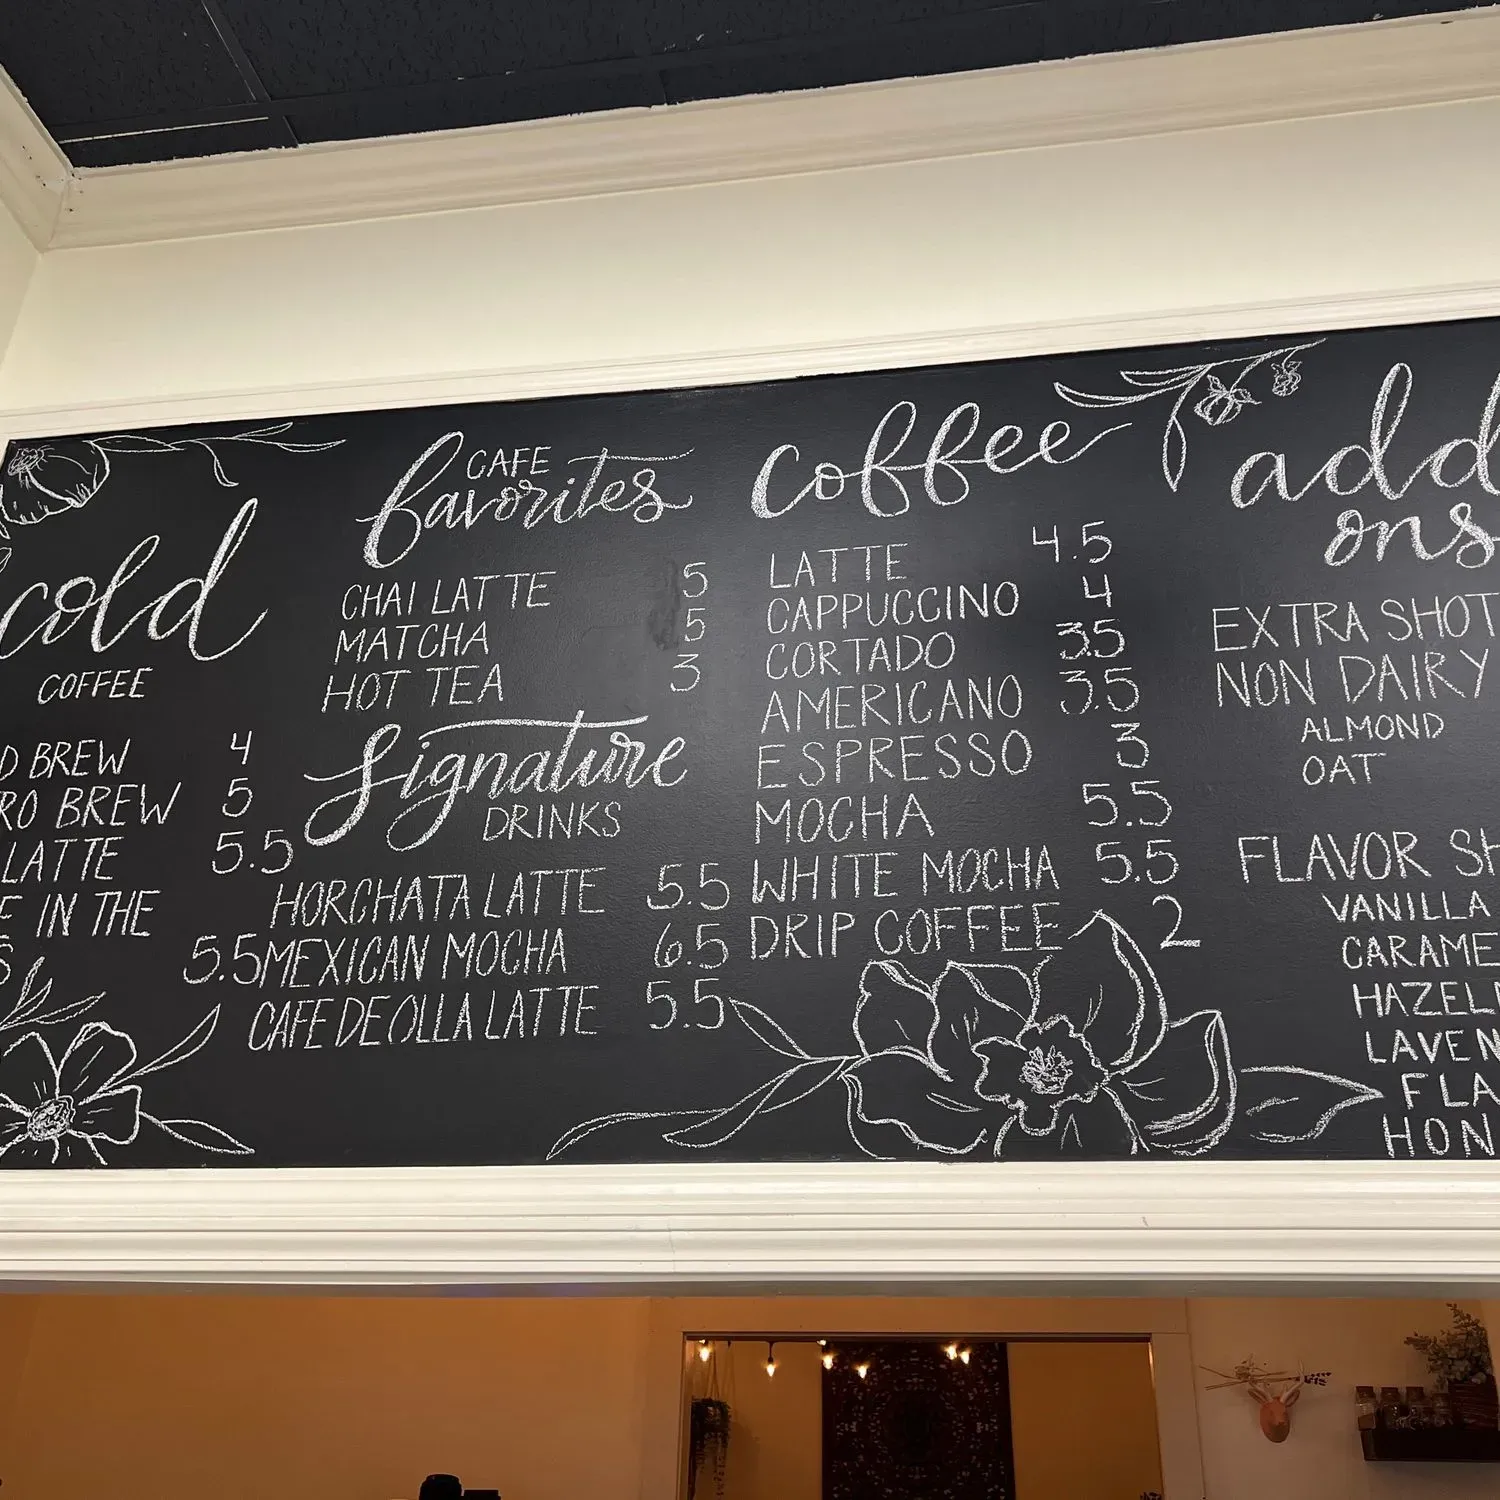 cold
COFFEE
D BREW 4
RO BREW 5
LATTE 5.5
E IN THE
S 5.5
CAFE
favorites
CHAI LATTE 5
MATCHA 5
HOT TEA 3
Signature
DRINKS
HORCHATA LATTE 5.5
MEXICAN MOCHA 6.5
CAFE DE OLLA LATTE 5.5
coffee
LATTE 4.5
CAPPUCCINO 4
CORTADO 3.5
AMERICANO 3.5
ESPRESSO 3
MOCHA 5.5
WHITE MOCHA 5.5
DRIP COFFEE 2
add
ons
EXTRA SHOT
NON DAIRY
ALMOND
OAT
FLAVOR SH
VANILLA
CARAME
HAZEL
LAVEN
FLA
HON